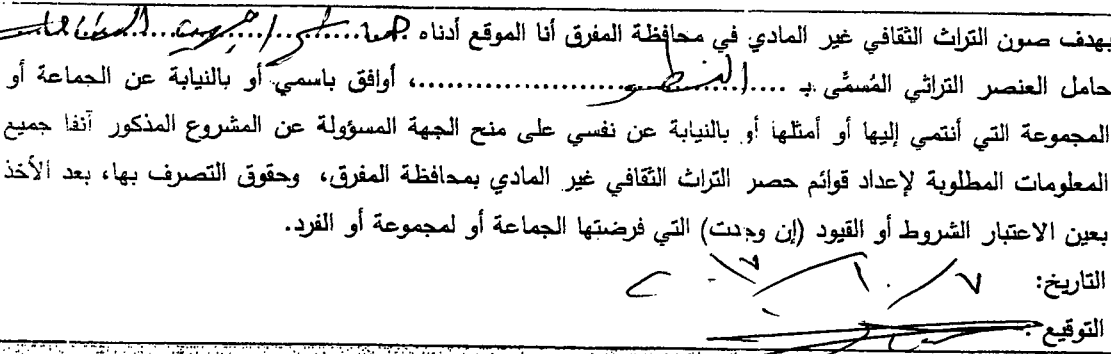 بهدف صون التراث الثقافي غير المادي في محافظة المفرق أنا الموقع أدناه
حامل العنصر التراثي المُسمَّى بـ ......................، أوافق باسمي أو بالنيابة عن الجماعة أو
المجموعة التي أنتمي إليها أو أمثلها أو بالنيابة عن نفسي على منح الجهة المسؤولة عن المشروع المذكور آنفا جميع
المعلومات المطلوبة لإعداد قوائم حصر التراث الثقافي غير المادي بمحافظة المفرق، وحقوق التصرف بها، بعد الأخذ
بعين الاعتبار الشروط أو القيود (إن وجدت) التي فرضتها الجماعة أو لمجموعة أو الفرد.
التاريخ: ٧ / ١٠ / ٢٠١٧
التوقيع: